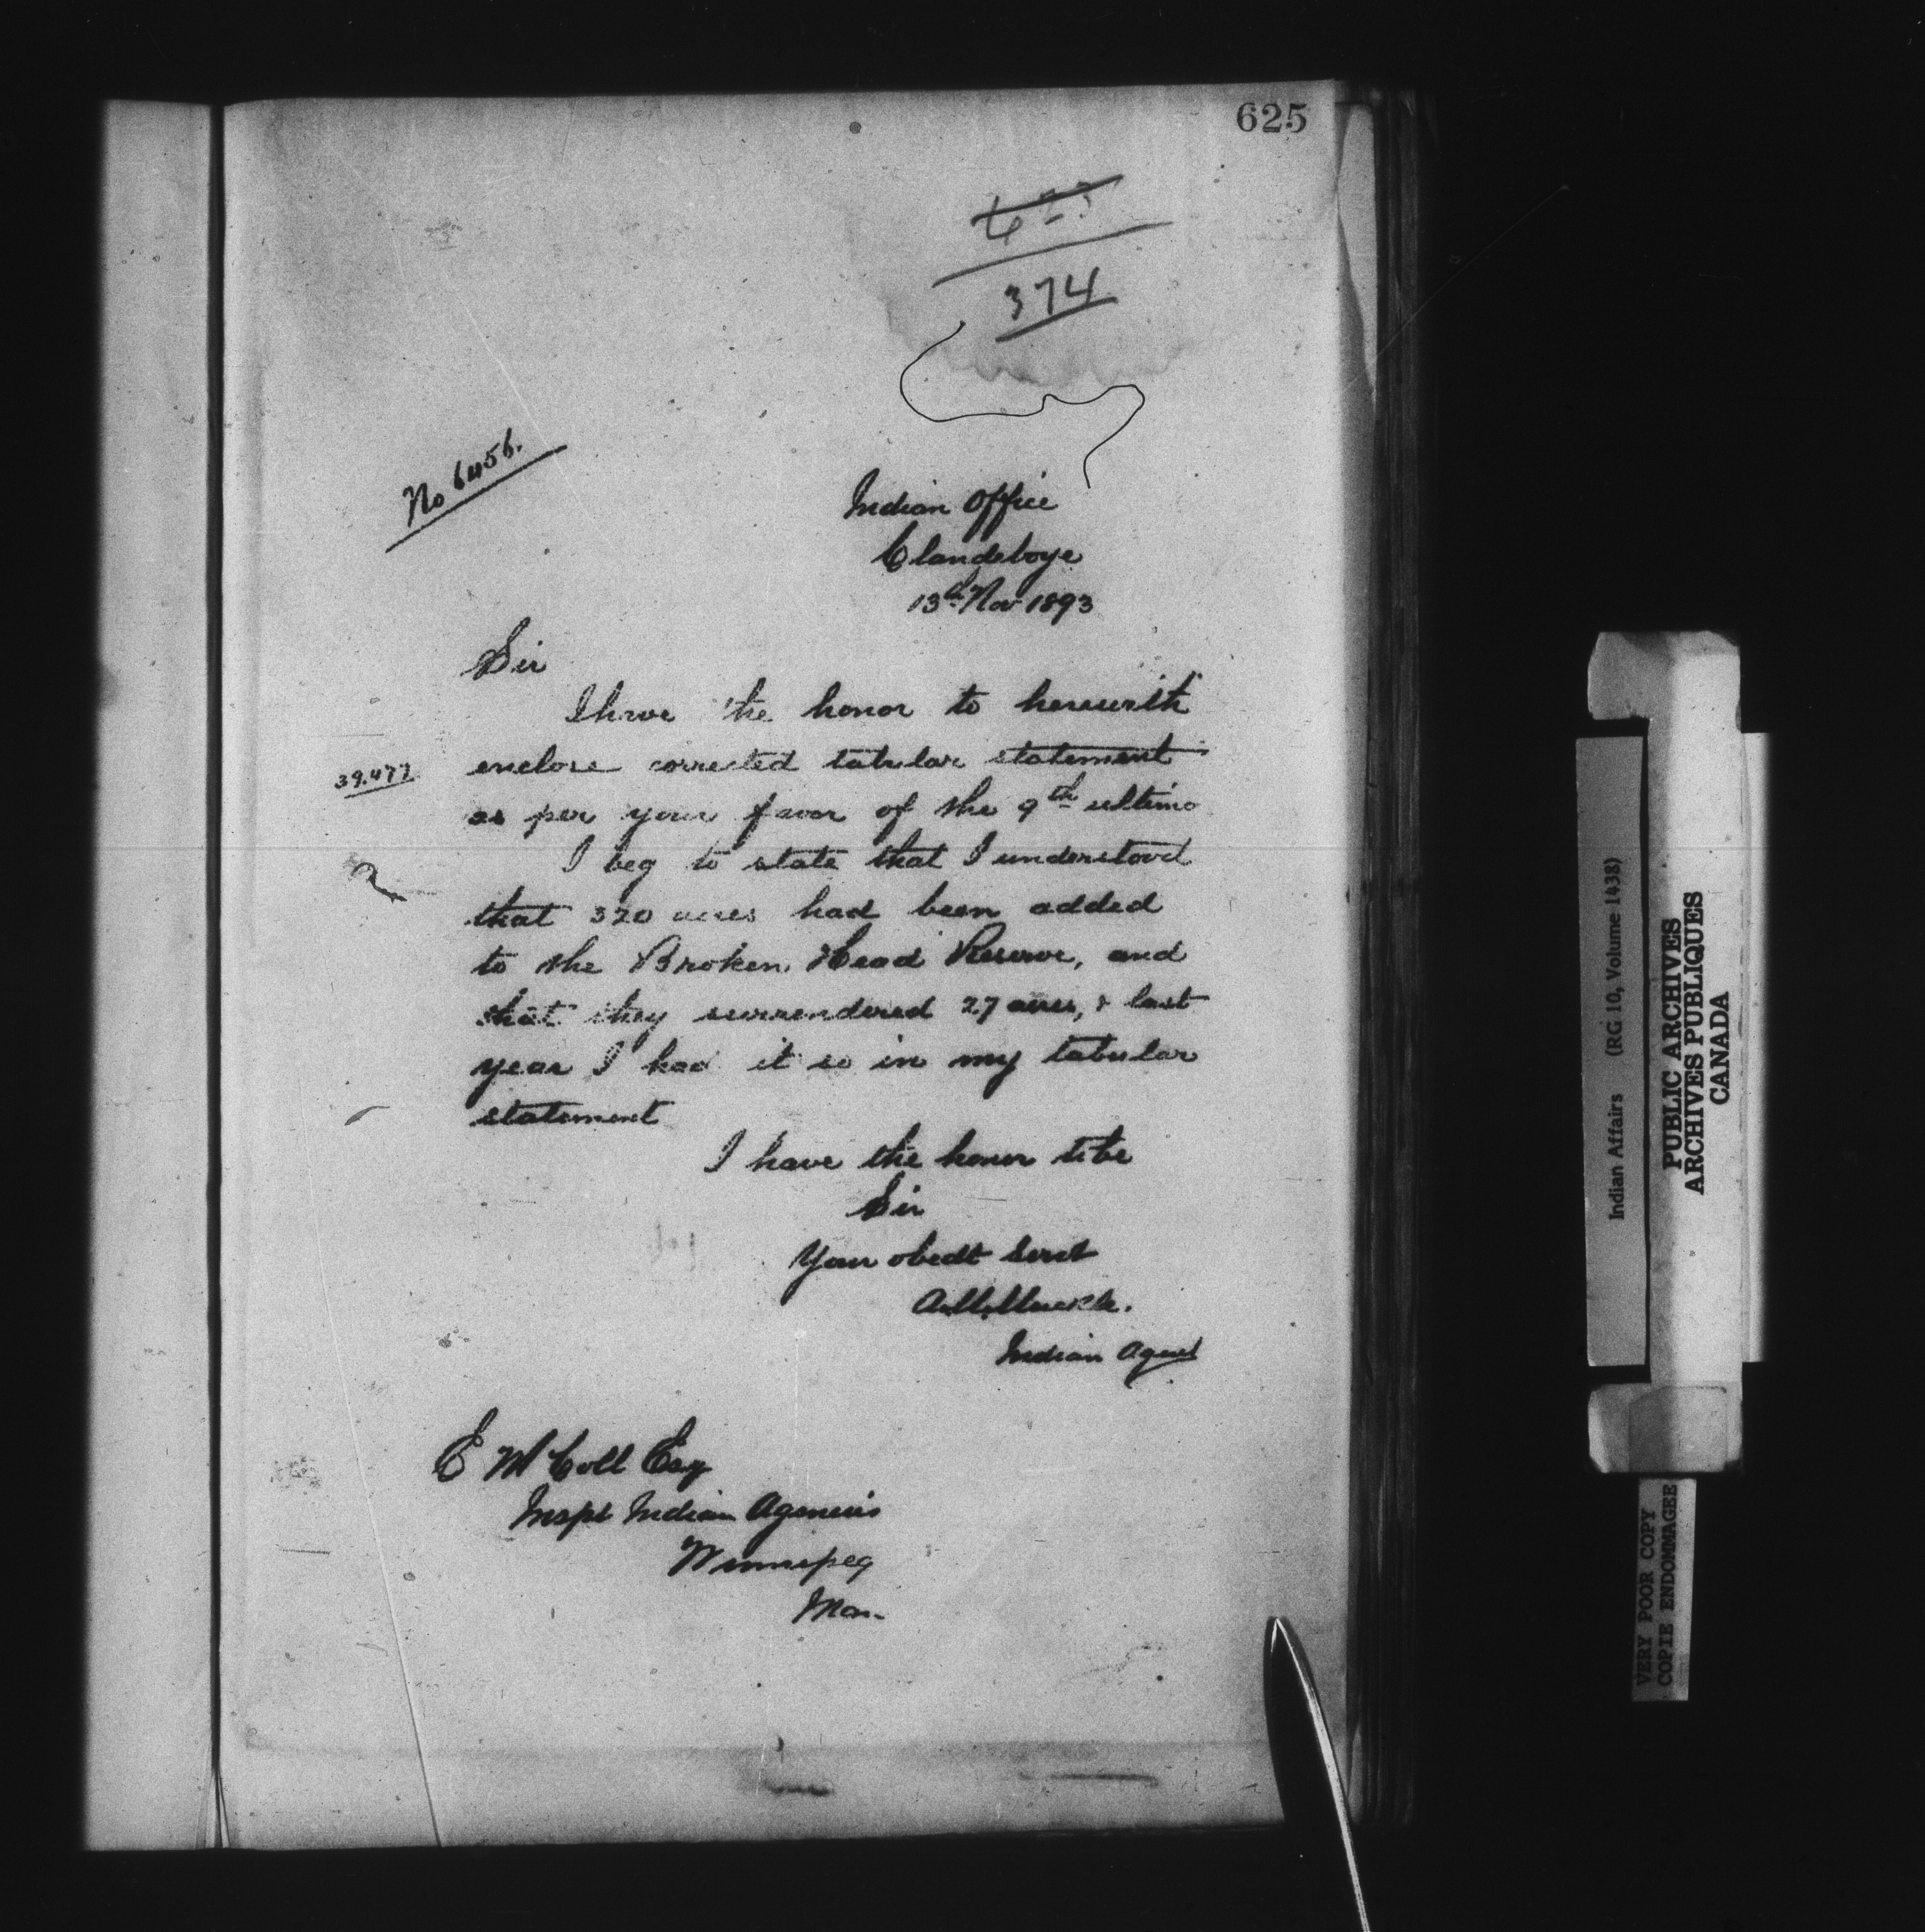 625
374
No 6456.
Indian Office
Clandeboye
13th Nov 1893
Sir
I have the honor to herewith
enclose corrected tabular statement
39.477
as per your favor of the 9th ultimo
I beg to state that I understood
that 320 acres had been added
to the Broken Head Reserve, and
that they surrendered 27 acres, & last
year I had it so in my tabular
statement
I have the honor to be
Sir
Your obedt Servt
A.M. Muckle.
Indian Agent
E McColl Esq
Inspt Indian Agencies
Winnipeg
Man.
Indian Affairs (RG 10, Volume 1438)
PUBLIC ARCHIVES
ARCHIVES PUBLIQUES
CANADA
VERY POOR COPY
COPIE ENDOMMAGEE